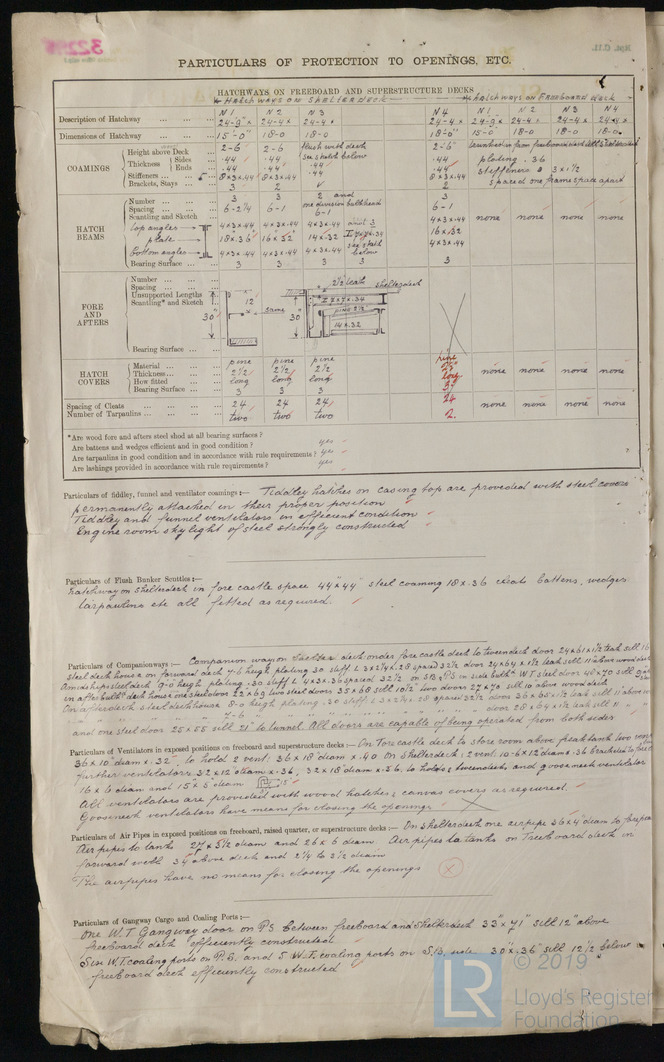 32295
Rpt. C.11.
PARTICULARS OF PROTECTION TO OPENINGS, ETC.
HATCHWAYS ON FREEBOARD AND SUPERSTRUCTURE DECKS
Hatchways on Shelterdeck Hatchways on Freeboard deck
N 1 N 2 N 3 N 4 N 1 N 2 N 3 N 4
Description of Hatchway 24-9 x 24-4 x 24-4 x 24-4 x 24-9 x 24-4 x 24-4 x 24-4 x
Dimensions of Hatchway 15-0" 18-0 18-0 18-0" 15-0" 18-0 18-0 18-0
COAMINGS
Height above Deck 2-6 2-6 flush with deck 2-6
Thickness Sides .44 .44 see sketch below .44 plating .36
Ends .44 .44 .44 .44 stiffeners 3 x 1/2
Stiffeners 8x3x.44 8x3x.44 .44 8x3x.44 spaced one frame space apart
Brackets, Stays 3 2 2
HATCH BEAMS
Number 3 3 2 and 3
Spacing 6-2 1/4 6-1 one division bulkhead 6-1 6-1
Scantling and Sketch
Top angles 4x3x.44 4x3x.44 4x3x.44 4x3x.44 none none none none
plate 18x.36 16x.32 14x.32 16x.32
Bottom angles 4x3x.44 4x3x.44 4x3x.44 see sketch below 4x3x.44
Bearing Surface 3 3 3 3
FORE AND AFTERS
Number
Spacing
Unsupported Lengths
Scantling* and Sketch
30" 12 same 30" 2 1/2 teak shelterdeck
I 7x7x.34
PINE 2 1/2
14x.32
Bearing Surface
HATCH COVERS
Material pine pine pine pine
Thickness 2 1/2 2 1/2 2 1/2 none none none none
How fitted long long long long
Bearing Surface 3 3 3 3
Spacing of Cleats 24 24 24 24 none none none none
Number of Tarpaulins two two two 2.
*Are wood fore and afters steel shod at all bearing surfaces?
Are battens and wedges efficient and in good condition? yes
Are tarpaulins in good condition and in accordance with rule requirements? yes
Are lashings provided in accordance with rule requirements? yes
Particulars of fiddley, funnel and ventilator coamings:— Fiddley hatches on casing top are provided with steel covers
permanently attached in their proper position
Fiddley and funnel ventilators in efficient condition
Engine room skylight of steel strongly constructed
Particulars of Flush Bunker Scuttles:—
Hatchway on shelterdeck in fore castle space 44" x 44" steel coaming 18 x .36 cleats battens, wedges
tarpaulins etc all fitted as required.
Particulars of Companionways:— Companion way on shelter deck under fore castle deck to tweendeck door 24x61x1 1/2 teak sill 16
steel deck house on forward deck 7-6 heigh plating .30 stiff L 3x2 1/4x.28 spaced 32 1/2 door 24x64x1 1/2 teak sill 11" above wood deck
Amidship steel deck 9-0 heigh plating .30 stiff L 4x3x.36 spaced 32 1/2 on S/B & P.S
in after bulkd deck house one steel door 22x69 two steel doors 35x68 sill 10 1/2 two doors 27x70 sill 10 above wood deck
On afterdeck steel deckhouse 8-0 heigh plating .30 stiff L 3x2 1/4x.28 spaced 32 1/2 doors 26x65x1 1/2 teak sill 11 above
7-6 door 28x64x1 1/2 teak sill
and one steel door 25x55 sill 21" to tunnel. All doors are capable of being operated from both sides
Particulars of Ventilators in exposed positions on freeboard and superstructure decks:— On Forecastle deck to store room above peak tank two
36 x 10" diam x .32, to hold 2 vent: 36 x 18" diam x .40 On Shelterdeck: 2 vent: 10-6 x 12" diam x .36
further ventilators 32 x 12" diam x .36, 32 x 18" diam x .36 to holds & tweendecks and gooseneck ventilator
16 x 6 diam and 15 x 5" diam
All ventilators are provided with wood hatches & canvas covers as required.
Gooseneck ventilators have means for closing the openings
Particulars of Air Pipes in exposed positions on freeboard, raised quarter, or superstructure decks:— On shelterdeck one airpipe 36 x 4" diam to forepeak
Air pipes to tanks 27 x 5 1/2 diam and 26 x 6 diam Air pipes to tanks on freeboard deck in
forward well 34 above deck and 2 1/4 to 3 1/2 diam
The airpipes have no means for closing the openings
Particulars of Gangway Cargo and Coaling Ports:—
One W.T. Gangway door on P.S between freeboard and shelterdeck 33" x 71" sill 12" above
freeboard deck efficiently constructed
Six W.T. coaling ports on P.S. and 5 W.T. coaling ports on S.B. side 30" x 36" sill 12 1/2 below
freeboard deck efficiently constructed
LR
© 2019
Lloyd's Register
Foundation